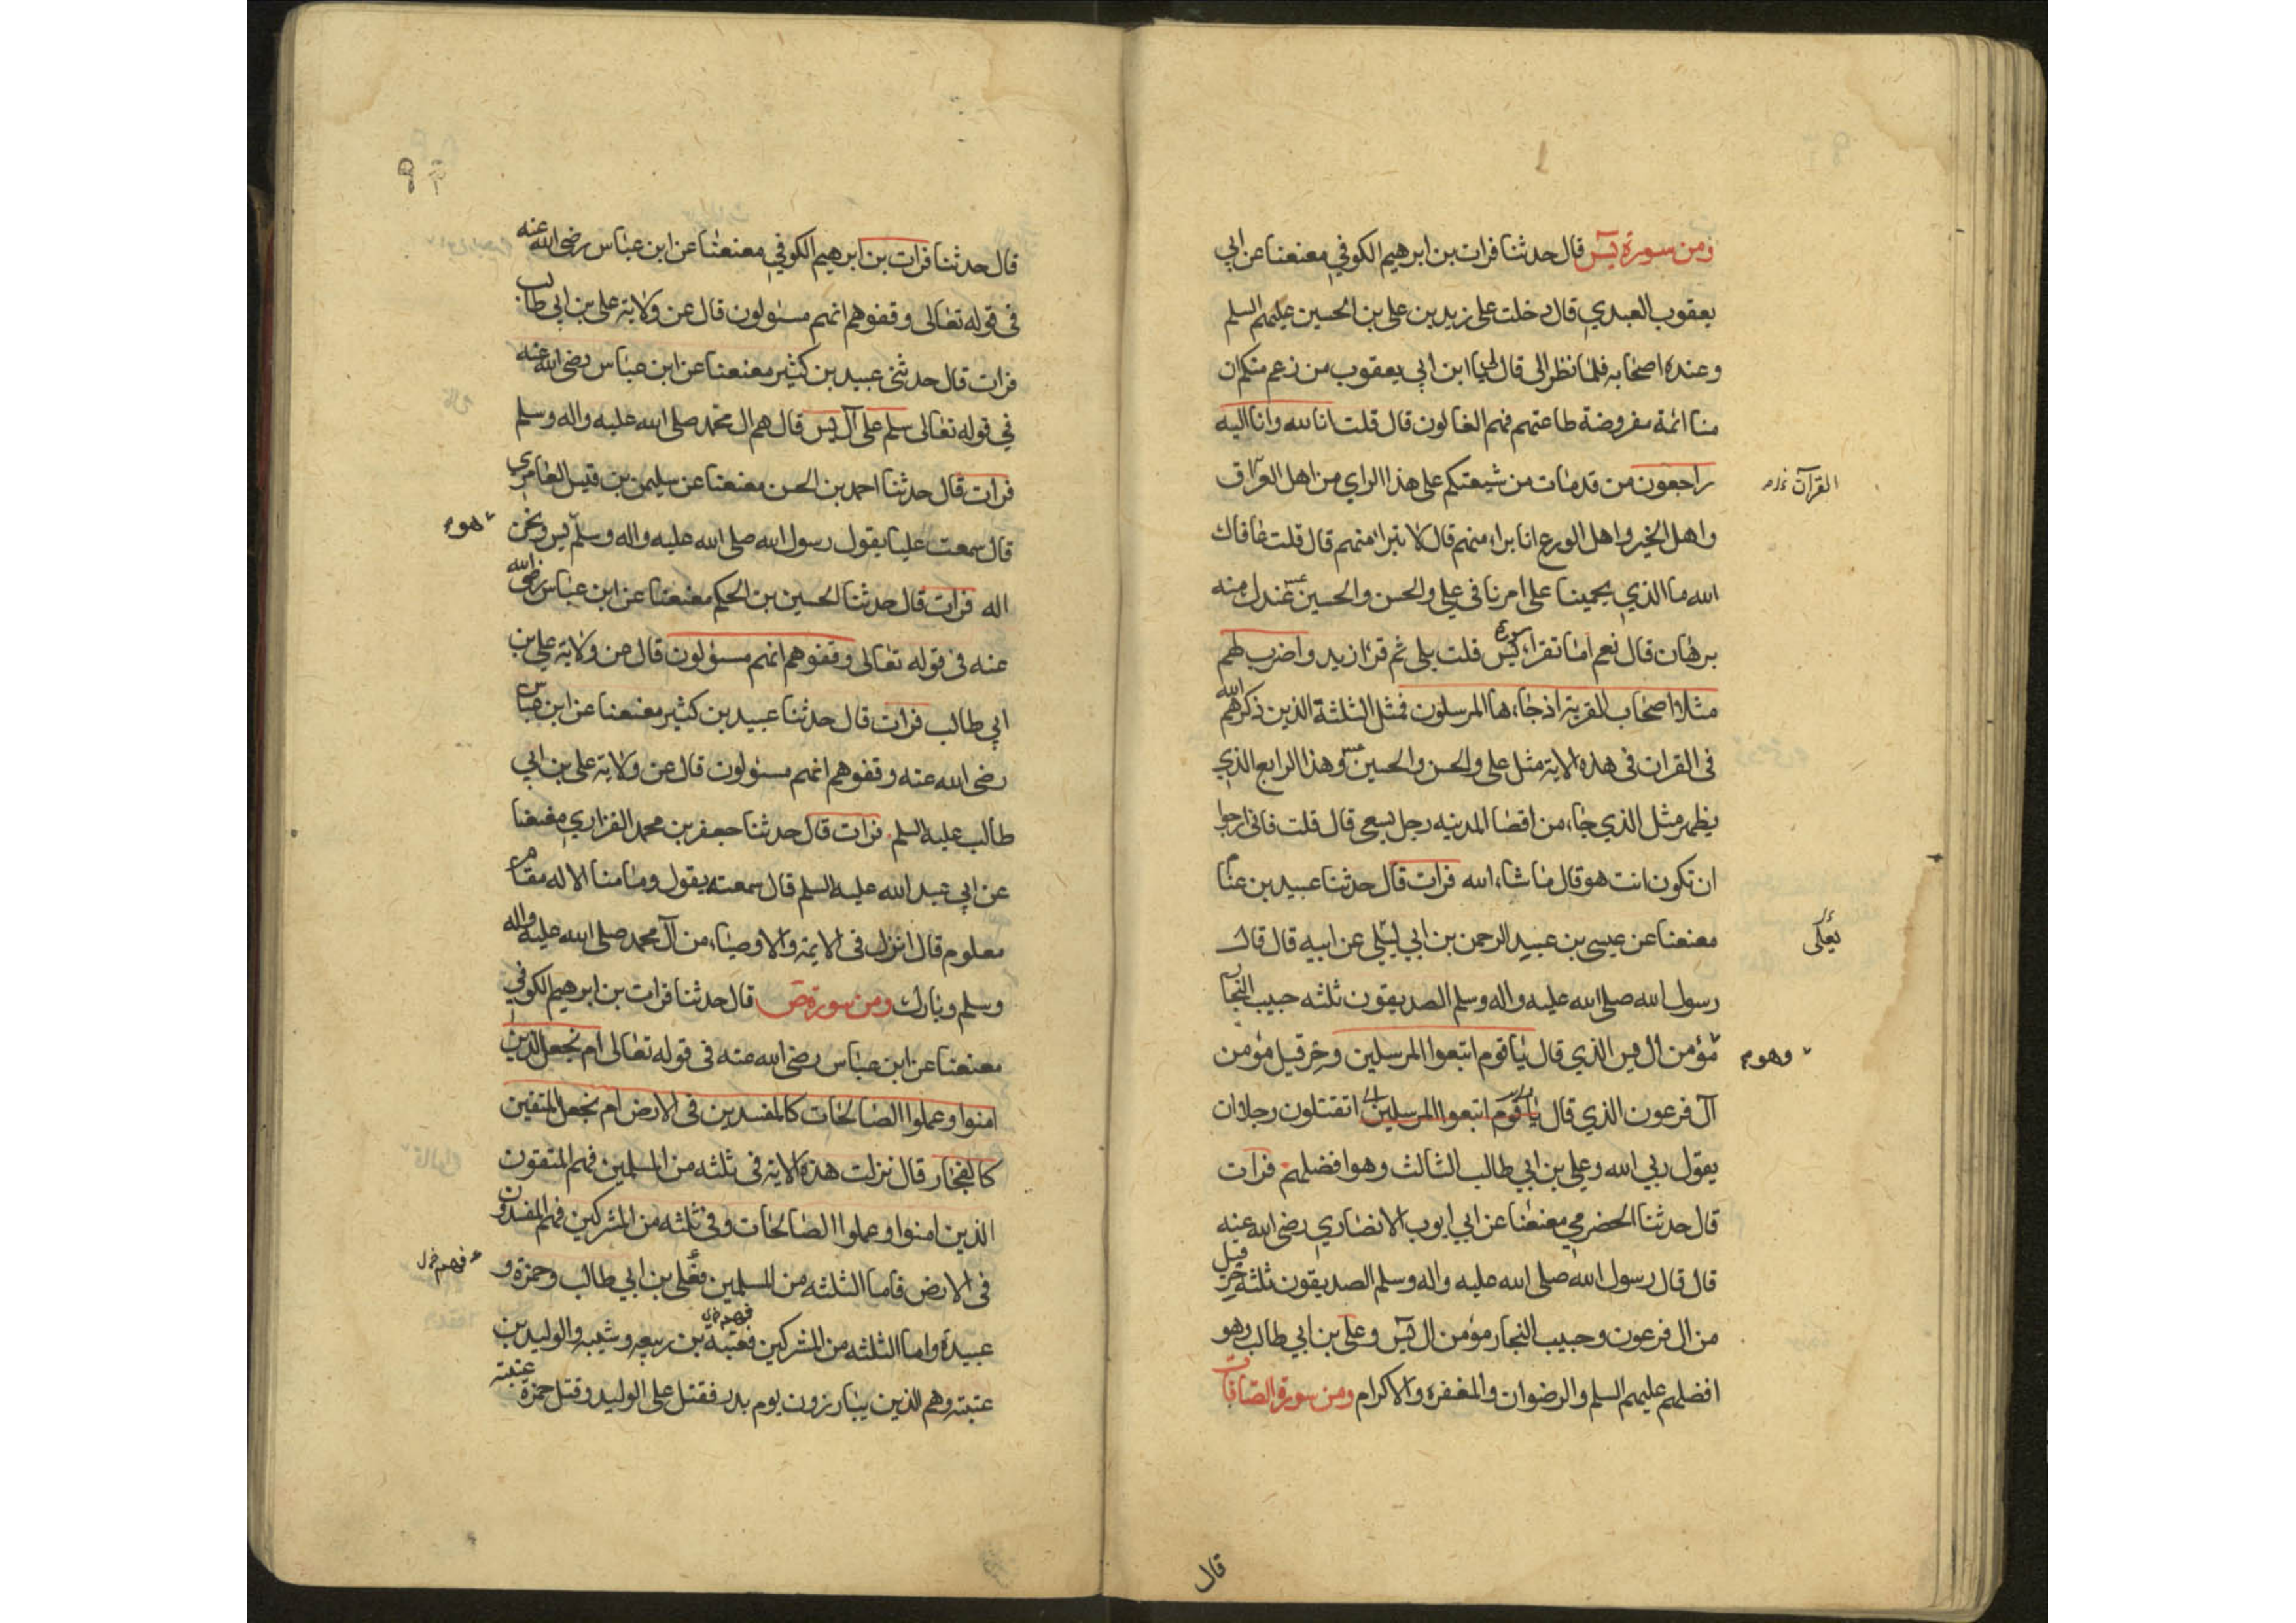 ومن سورة يس قال حدثنا فرات بن ابرهيم الكوفي معنعنا عن ابي
يعقوب العبدي قال دخلت على زيد بن علي بن الحسين عليهم السلم
وعنده اصحابه فلما نظر الى قال لي يا ابن ابي يعقوب من زعم منكم ان
منا ائمة مفروضة طاعتهم فهم الغالون قال قلت انا لله وانا اليه
راجعون من قد مات من شيعتكم على هذا الراي من اهل العراق
القرآن
واهل الخير واهل الورع انا براء منهم قال لا تبرا منهم قال قلت عافاك
الله ما الذي يحمينا على امرنا في علي والحسن والحسين عندك منه
برهان قال نعم اما تقراء سورة يس قلت بلى ثم قرا زيد واضرب لهم
مثلا اصحاب القرية اذ جاءها المرسلون فمثل الثلثة الذين ذكرهم الله
في القران في هذه الاية مثل علي والحسن والحسين وهذا الرابع الذي
يظهر مثل الذي جاء من اقصا المدينه رجل يسعى قال قلت فاني ارجوا
ان تكون انت هو قال ما شاء الله فرات قال حدثنا عبيد بن
معنعنا عن عيسى بن عبيد الرحمن بن ابي ليلي عن ابيه قال قال
يعلى
رسول الله صلى الله عليه واله وسلم الصديقون ثلثه حبيب النجار
مؤمن ال يس الذي قال يا قوم اتبعوا المرسلين وخرقيل مؤمن
وهو
آل فرعون الذي قال يا قوم اتبعوا المرسلين اتقتلون رجلا ان
يقول ربي الله وعلي بن ابي طالب الثالث وهو افضلهم فرات
قال حدثنا الحضرمي معنعنا عن ابي ايوب الانصاري رضى الله عنه
قال قال رسول الله صلى الله عليه واله وسلم الصديقون ثلثه خرقيل
من ال فرعون وحبيب النجار مؤمن ال يس وعلى بن ابي طالب وهو
افضلهم عليهم السلم والرضوان والمغفره والاكرام ومن سورة الصافات
قال
قال حدثنا فرات بن ابرهيم الكوفي معنعنا عن ابن عباس رضى الله عنه
في قوله تعالى وقفوهم انهم مسئولون قال عن ولاية على بن ابي طالب
فرات قال حدثني عبيد بن كثير معنعنا عن ابن عباس رضى الله عنه
في قوله تعالى سلم على آل يس قال هم ال محمد صلى الله عليه واله وسلم
فرات قال حدثنا احمد بن الحسن معنعنا عن سليمن بن قيس العامري
قال سمعت عليا يقول رسول الله صلى الله عليه واله وسلم يس ونحن
هو
اله فرات قال حدثنا الحسين بن الحكم معنعنا عن ابن عباس رضى الله
عنه في قوله تعالى وقفوهم انهم مسؤلون قال عن ولاية علي بن
ابي طالب فرات قال حدثنا عبيد بن كثير معنعنا عن ابن عباس
رضى الله عنه وقفوهم انهم مسئولون قال عن ولاية على بن ابي
طالب عليه السلم فرات قال حدثنا جعفر بن محمد الفزاري معنعنا
عن ابي عبد الله عليه السلم قال سمعته يقول وما منا الا له مقام
معلوم قال انزل في الايمة والاوصياء من آل محمد صلى الله عليه واله
وسلم وبارك ومن سورة ص قال حدثنا فرات بن ابرهيم الكوفي
معنعنا عن ابن عباس رضى الله عنه في قوله تعالى ام نجعل الذين
امنوا وعملوا الصالحات كالمفسدين في الارض ام نجعل المتقين
كالفجار قال نزلت هذه الاية في ثلثه من المسلمين فهم المتقون
الذين امنوا وعملوا الصالحات وفي ثلثه من المشركين فهم المفسدون
في الارض فاما الثلثه من المسلمين فعلي بن ابي طالب وحمزة و
فهم
عبيدة واما الثلثه من المشركين فعتبة بن ربيعه وشيبه والوليد بن
عتبته وهم الذين يتبارزون يوم بدر فقتل على الوليد وقتل حمزة عتبته